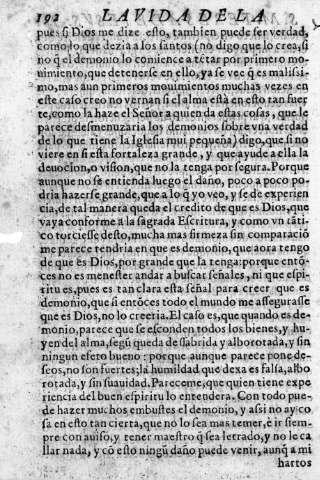 192 LA VIDA DE LA
pues q̃ Dios me dize esto, tambien puede ser verdad,
como lo que dezia a los santos (no digo que lo crea, si
no q̃ el demonio lo comience a tẽtar por primero mo
uimiento, que detenerse en ello, ya se vee q̃ es malissi-
mo, mas aun primeros mouimientos muchas vezes en
este caso creo no vernan si el alma està en esto tan fuer
te, como la haze el Señor a quien da estas cosas, que le
parece desmenuzaria los demonios sobre vna verdad
de lo que tiene la Iglesia mui pequeña) digo, que si no
viere en si esta fortaleza grande, y que ayude a ella la
deuocion, o vision, que no la tenga por segura. Porque
aunque no se entienda luego el daño, poco a poco po-
dria hazerse grande, que a lo q̃ yo veo, y se de experien
cia, de tal manera queda el credito de que es Dios, que
vaya conforme a la sagrada Escritura, y como vn tãti-
co torciesse desto, mucha mas firmeza sin comparaciõ
me parece tendria en que es demonio, que aora tengo
de que es Dios, por grande que la tenga: porque entõ-
ces no es menester andar a buscar señales, ni que espi-
ritu es, pues es tan clara esta señal para creer que es
demonio, que si entõces todo el mundo me assegurasse
que es Dios, no lo creeria. El caso es, que quando es de-
monio, parece que se esconden todos los bienes, y hu-
yen del alma, segũ queda desabrida y alborotada, y sin
ningun efeto bueno: porque aunque parece pone de-
seos, no son fuertes; la humildad que dexa es falsa, albo
rotada, y sin suauidad. Pareceme, que quien tiene expe
riencia del buen espiritu lo entendera. Con todo pue-
de hazer muchos embustes el demonio, y assi no ay co
sa en esto tan cierta, que no lo sea mas temer, è ir siem-
pre con auiso, y tener maestro q̃ sea letrado, y no le ca
llar nada, y cõ esto ningũ daño puede venir, aunq̃ a mi
hartos